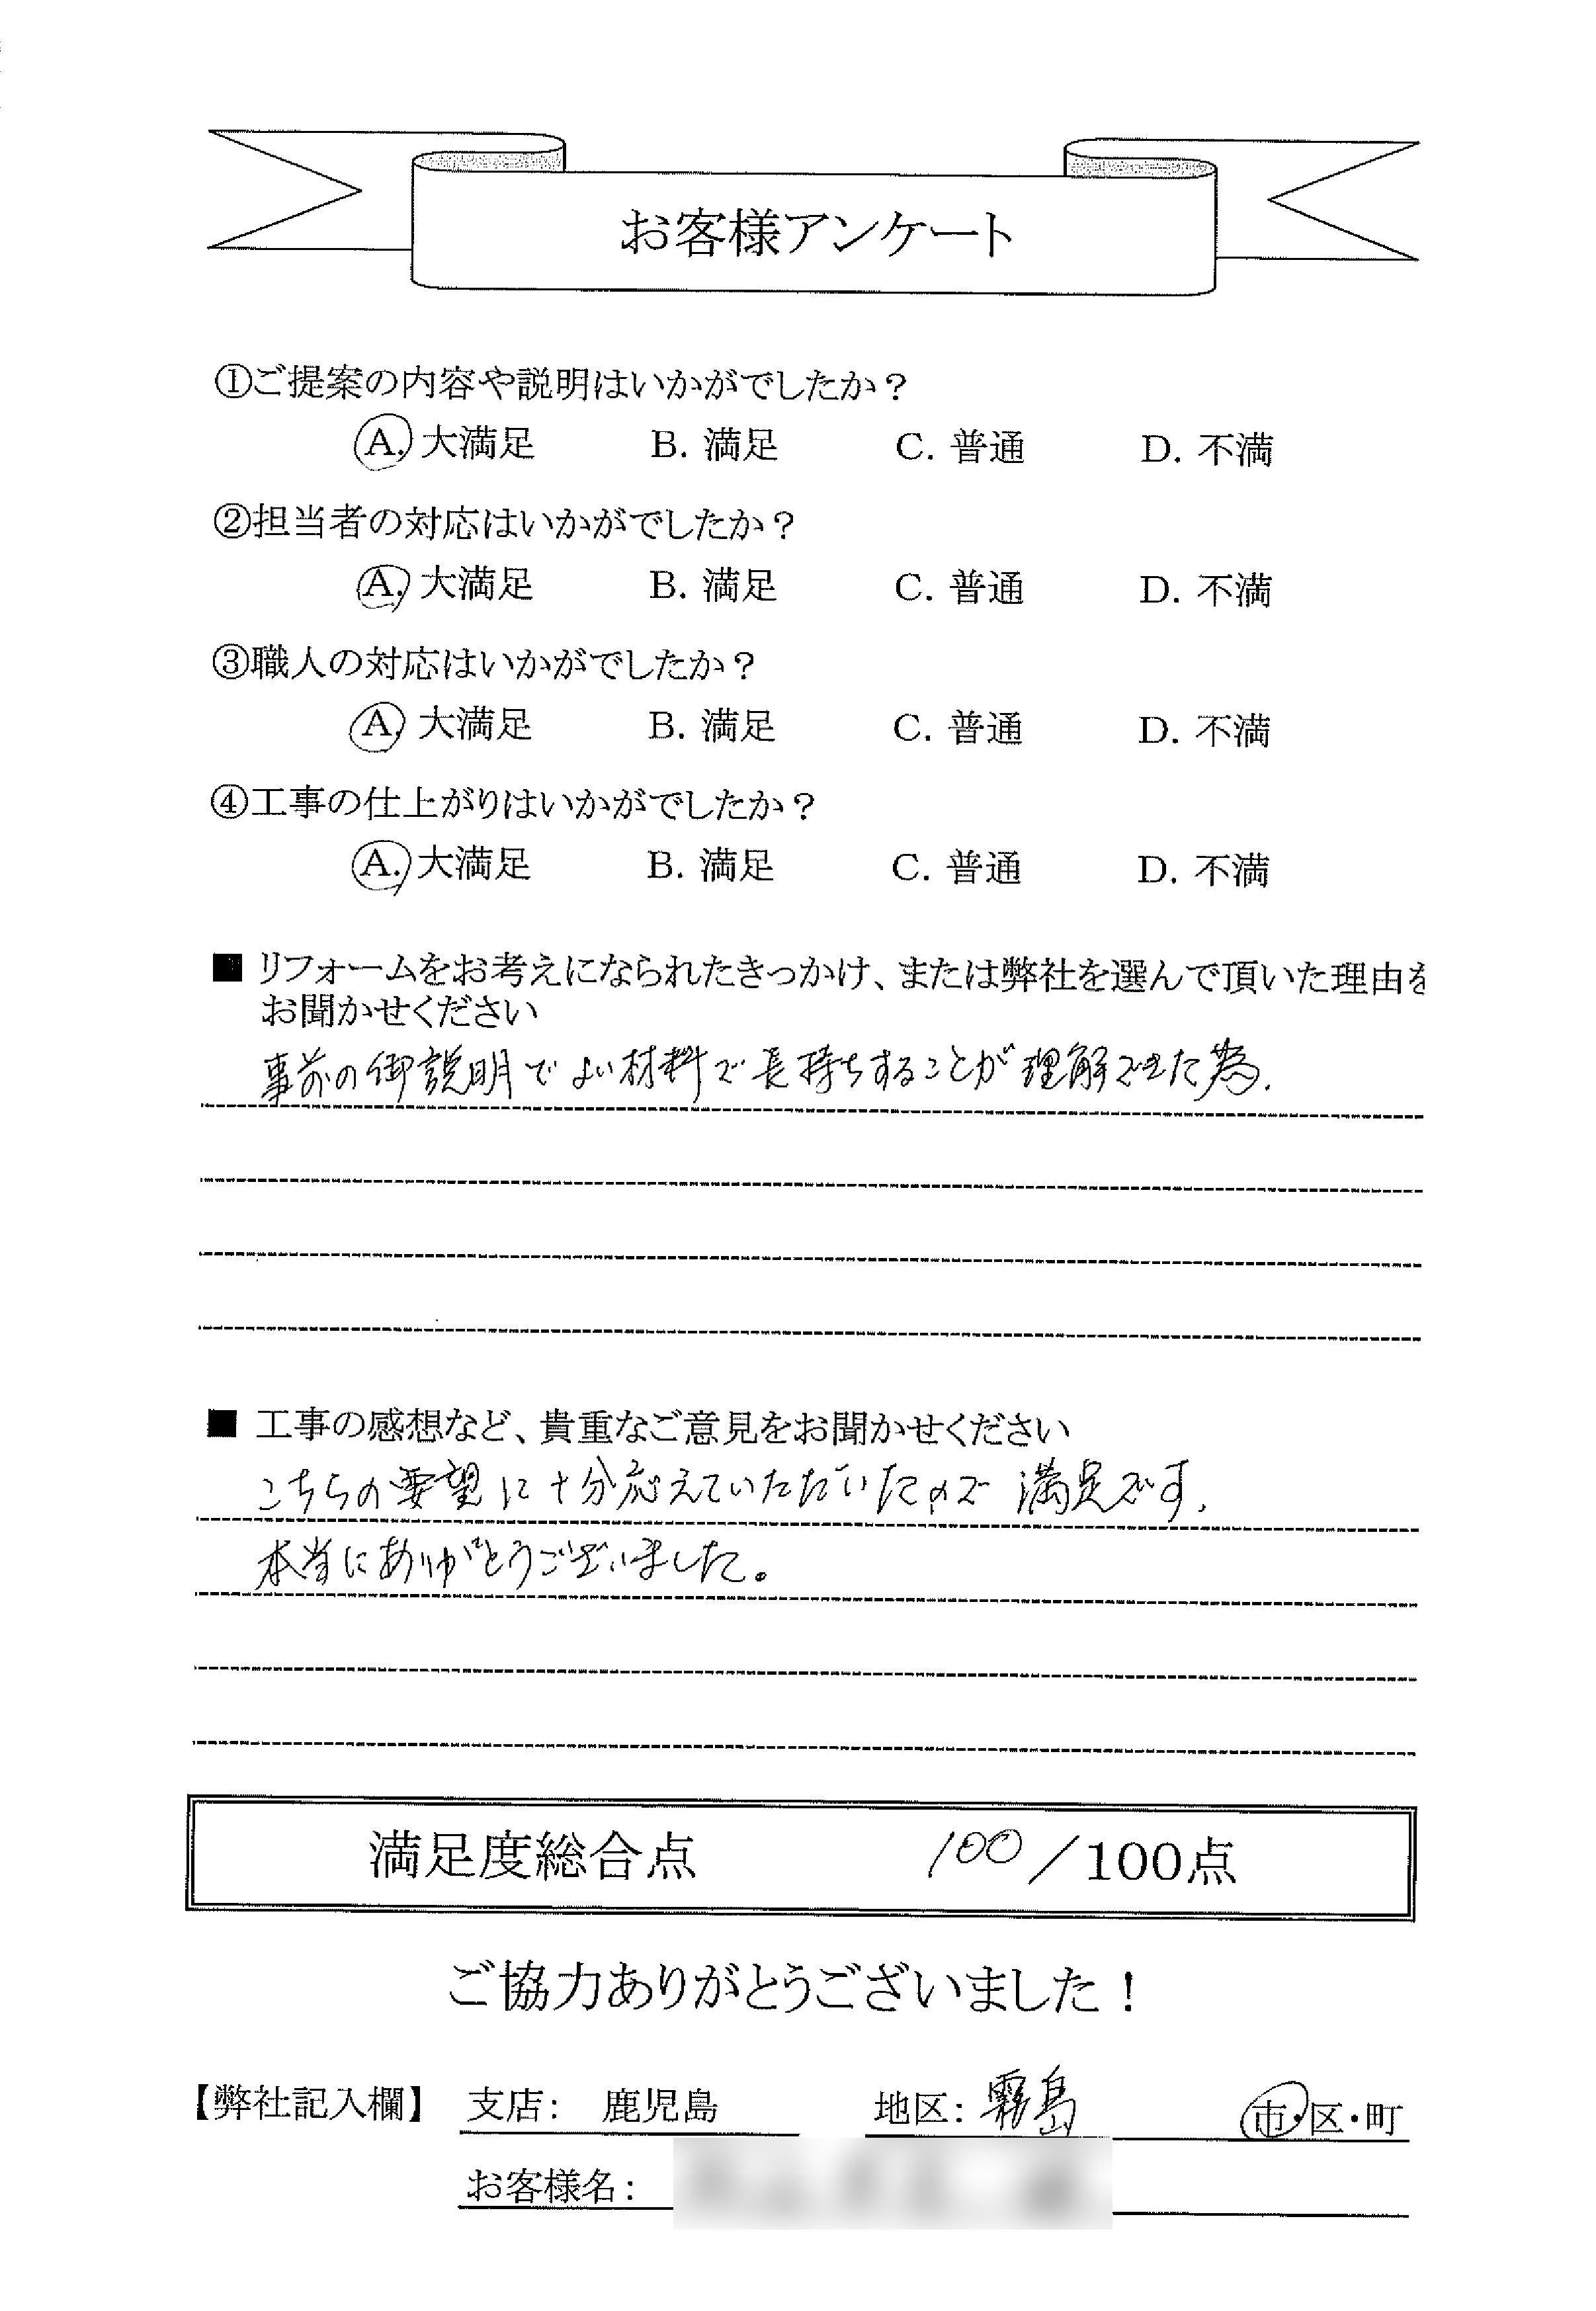 お客様アンケート
①ご提案の内容や説明はいかがでしたか？
A. 大満足 B. 満足 C. 普通 D. 不満
②担当者の対応はいかがでしたか？
A. 大満足 B. 満足 C. 普通 D. 不満
③職人の対応はいかがでしたか？
A. 大満足 B. 満足 C. 普通 D. 不満
④工事の仕上がりはいかがでしたか？
A. 大満足 B. 満足 C. 普通 D. 不満
■ リフォームをお考えになられたきっかけ、または弊社を選んで頂いた理由を
お聞かせください
事前の御説明でよい材料で長持ちすることが理解できた為.
■ 工事の感想など、貴重なご意見をお聞かせください
こちらの要望に十分応えていただいたので 満足です.
本当にありがとうございました。
満足度総合点 100／100点
ご協力ありがとうございました！
【弊社記入欄】 支店： 鹿児島 地区：霧島 市・区・町
お客様名：